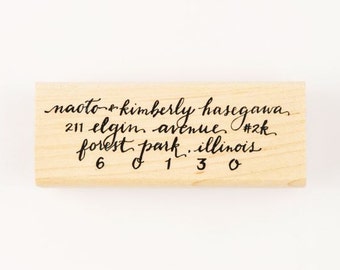 naoto & kimberly hasegawa
211 elgin avenue #2k
forest park, illinois
6 0 1 3 0